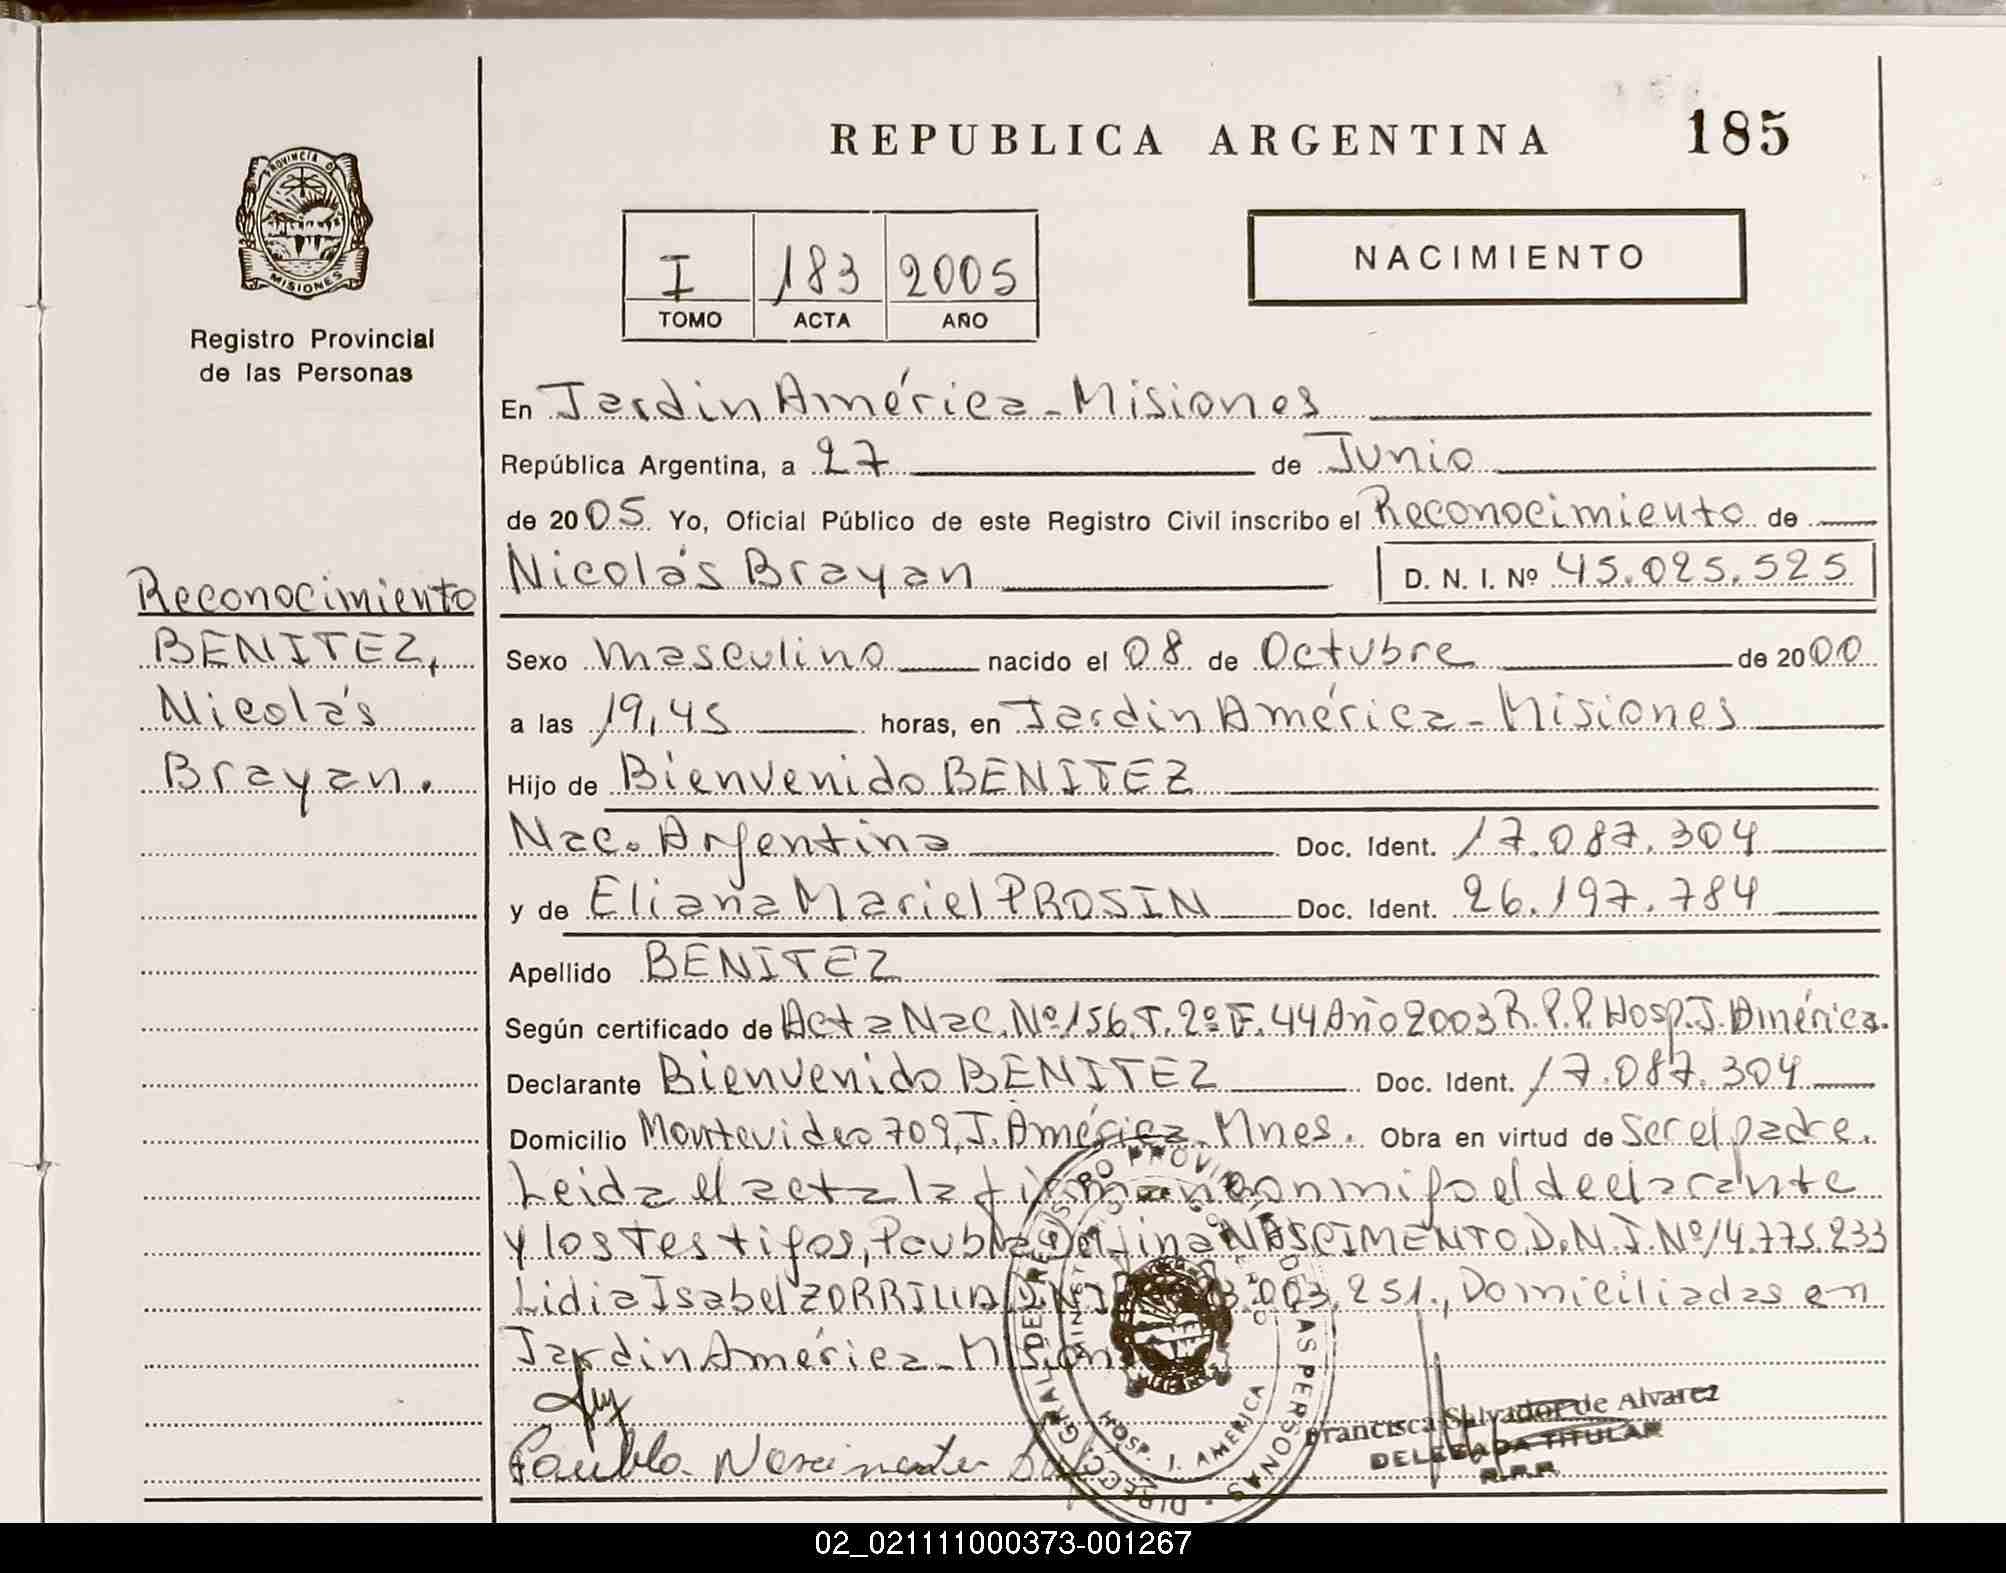 REPUBLICA ARGENTINA
185
PROVINCIA DE
MISIONES
Registro Provincial
de las Personas
I 183 2005
TOMO ACTA AÑO
NACIMIENTO
En Jardin América - Misiones
República Argentina, a 27 de Junio
de 2005 Yo, Oficial Público de este Registro Civil inscribo el Reconocimiento de
Nicolás Brayan D. N. I. Nº 45.025.525
Reconocimiento
BENITEZ,
Nicolás
Brayan.
Sexo Masculino nacido el 08 de Octubre de 2000
a las 19,45 horas, en Jardin América - Misiones
Hijo de Bienvenido BENITEZ
Nac. Argentina Doc. Ident. 17.087.304
y de Eliana Mariel PROSIN Doc. Ident. 26.197.784
Apellido BENITEZ
Según certificado de Acta Nac. Nº 156, T. 2º F. 44 Año 2003 R.P.P. Hosp. J. América.
Declarante Bienvenido BENITEZ Doc. Ident. 17.087.304
Domicilio Montevideo 709, J. América - Mnes. Obra en virtud de ser el padre.
Leida el acta la firman conmigo el declarante
y los testigos, Paubla NASCIMENTO D.N.I. Nº 14.775.233
Lidia Isabel ZORRILLA 003.251., Domiciliadas en
Jardin América - Misiones
Paubla
DIRECC. GRAL. DE REGISTRO PROVINCIAL DE LAS PERSONAS
HOSP. J. AMERICA
Francisca Salvador de Alvarez
DELEGADA TITULAR
R.P.P.
02_021111000373-001267